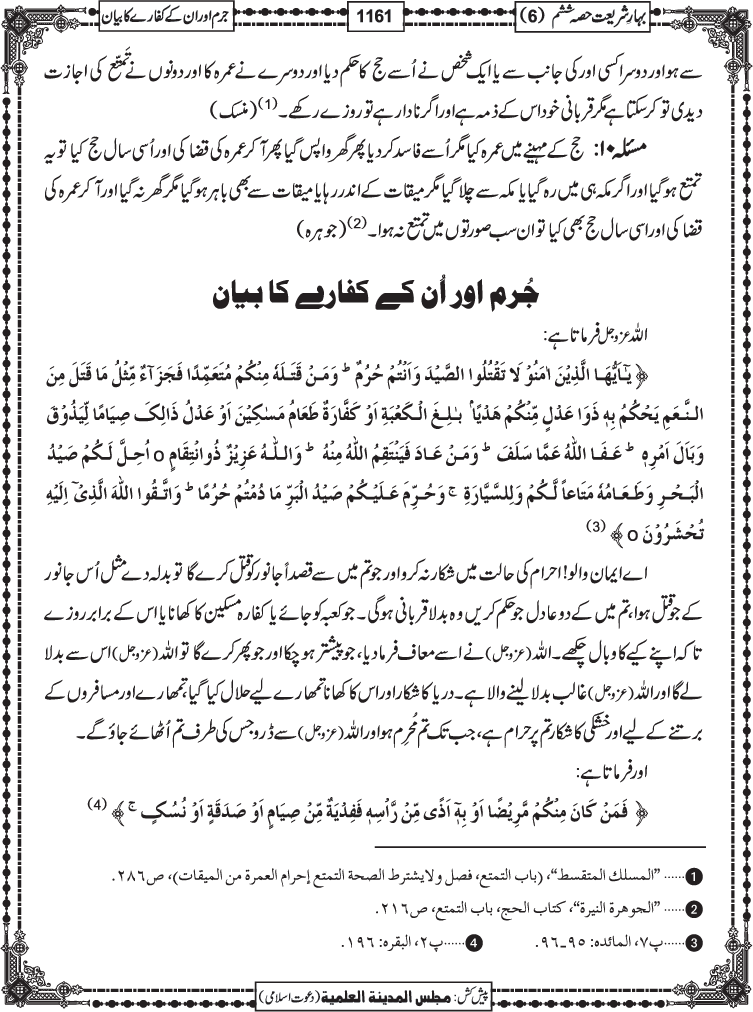 بہار شریعت حصہ ششم (6)
1161
جرم اور ان کے کفارے کا بیان
سے ہو اور دوسرا کسی اور کی جانب سے یا ایک شخص نے اُسے حج کا حکم دیا اور دوسرے نے عمرہ کا اور دونوں نے تَمتّع کی اجازت
دیدی تو کرسکتا ہے مگر قربانی خود اس کے ذمہ ہے اور اگر نادار ہے تو روزے رکھے۔(1) (منسک)
مسئلہ ۱۰: حج کے مہینے میں عمرہ کیا مگر اُسے فاسد کر دیا پھر گھر واپس گیا پھر آکر عمرہ کی قضا کی اور اُسی سال حج کیا تو یہ
تمتع ہو گیا اور اگر مکہ ہی میں رہ گیا یا مکہ سے چلا گیا مگر میقات کے اندر رہا یا میقات سے بھی باہر ہو گیا مگر گھر نہ گیا اور آکر عمرہ کی
قضا کی اور اسی سال حج بھی کیا تو ان سب صورتوں میں تمتع نہ ہوا۔(2) (جوہرہ)
جُرم اور اُن کے کفارے کا بیان
اللہ عزوجل فرماتا ہے:
﴿ یٰۤاَیُّهَا الَّذِیْنَ اٰمَنُوْ لَا تَقْتُلُوا الصَّیْدَ وَاَنْتُمْ حُرُمٌ ؕ وَمَنْ قَتَلَهٗ مِنْكُمْ مُتَعَمِّدًا فَجَزَآءٌ مِّثْلُ مَا قَتَلَ مِنَ
النَّعَمِ یَحْكُمُ بِهٖ ذَوَا عَدْلٍ مِّنْكُمْ هَدْیًاۢ بٰلِغَ الْكَعْبَةِ اَوْ كَفَّارَةٌ طَعَامُ مَسٰكِیْنَ اَوْ عَدْلُ ذَالِكَ صِیَامًا لِّیَذُوْقَ
وَبَالَ اَمْرِهٖ ؕ عَفَا اللّٰهُ عَمَّا سَلَفَ ؕ وَمَنْ عَادَ فَیَنْتَقِمُ اللّٰهُ مِنْهُ ؕ وَاللّٰهُ عَزِیْزٌ ذُوانْتِقَامٍ o اُحِلَّ لَكُمْ صَیْدُ
الْبَحْرِ وَطَعَامُهٗ مَتَاعاً لَّكُمْ وَلِلسَّیَّارَةِ ۚ وَحُرِّمَ عَلَیْكُمْ صَیْدُ الْبَرِّ مَا دُمْتُمْ حُرُمًا ؕ وَاتَّقُوا اللّٰهَ الَّذِیْۤ اِلَیْهِ
تُحْشَرُوْنَ o ﴾ (3)
اے ایمان والو! احرام کی حالت میں شکار نہ کرو اور جو تم میں سے قصداً جانور کو قتل کرے گا تو بدلہ دے مثل اُس جانور
کے جو قتل ہوا، تم میں کے دو عادل جو حکم کریں وہ بدلا قربانی ہوگی۔ جو کعبہ کو جائے یا کفارہ مسکین کا کھانا یا اس کے برابر روزے
تاکہ اپنے کیے کا وبال چکھے۔ اللہ (عزوجل) نے اسے معاف فرما دیا، جو پیشتر ہو چکا اور جو پھر کرے گا تو اللہ (عزوجل) اس سے بدلا
لے گا اور اللہ (عزوجل) غالب بدلا لینے والا ہے۔ دریا کا شکار اور اس کا کھانا تمھارے لیے حلال کیا گیا، تمھارے اور مسافروں کے
برتنے کے لیے اور خشکی کا شکار تم پر حرام ہے، جب تک تم مُحرِم ہو اور اللہ (عزوجل) سے ڈرو جس کی طرف تم اُٹھائے جاؤ گے۔
اور فرماتا ہے:
﴿ فَمَنْ كَانَ مِنْكُمْ مَّرِیْضًا اَوْ بِهٖۤ اَذًى مِّنْ رَّاْسِهٖ فَفِدْیَةٌ مِّنْ صِیَامٍ اَوْ صَدَقَةٍ اَوْ نُسُكٍ ۚ ﴾ (4)
1 ...... ”المسلك المتقسط“، (باب التمتع، فصل ولا يشترط الصحة التمتع إحرام العمرة من الميقات)، ص۲۸۶.
2 ...... ”الجوهرة النيرة“، كتاب الحج، باب التمتع، ص۲۱۶.
3 ...... پ۷، المائدہ: ۹۵ـ۹۶. 4 ...... پ۲، البقرہ: ۱۹۶.
پیش کش: مجلس المدینة العلمیة (دعوت اسلامی)